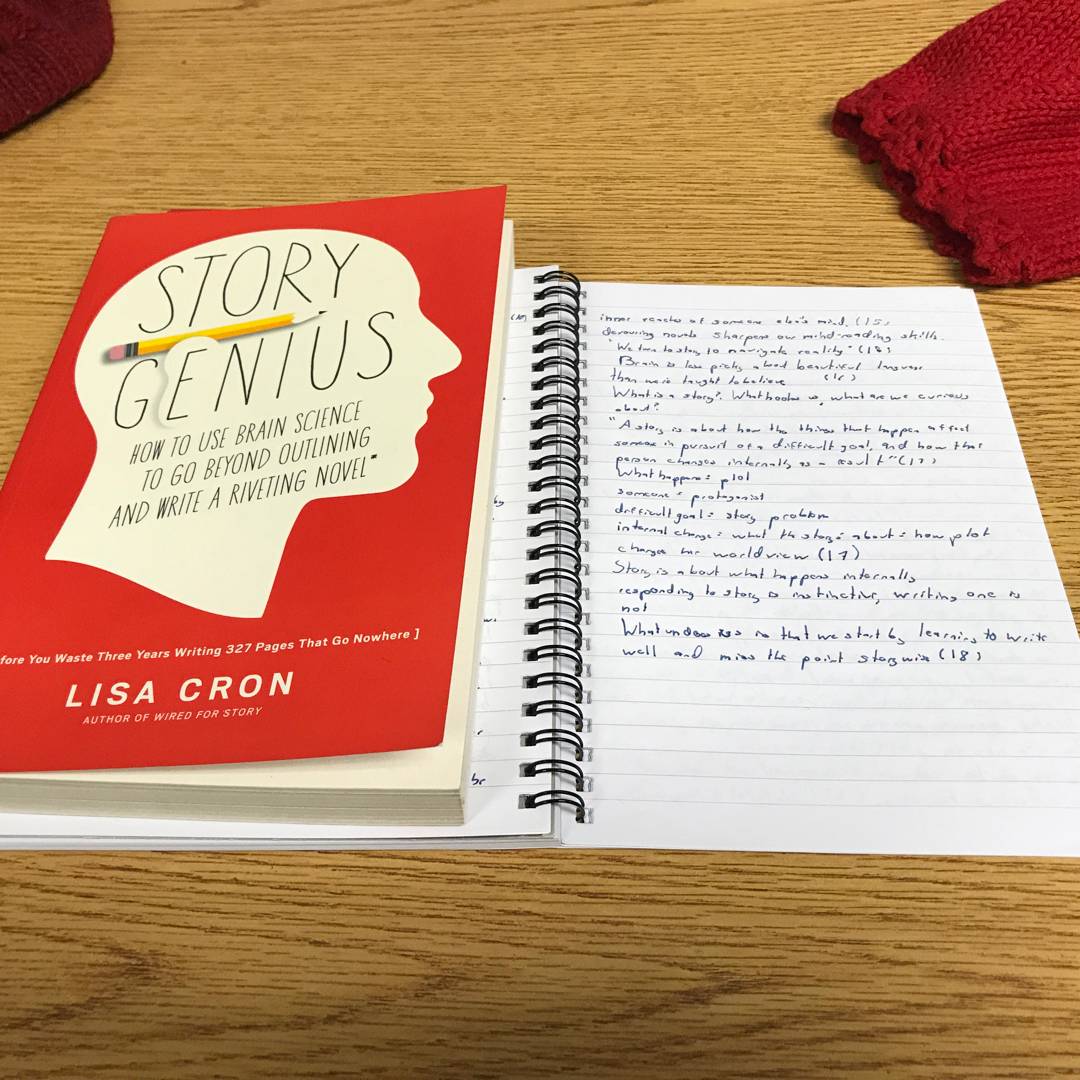 STORY
GENIUS
HOW TO USE BRAIN SCIENCE
TO GO BEYOND OUTLINING
AND WRITE A RIVETING NOVEL*
fore You Waste Three Years Writing 327 Pages That Go Nowhere ]
LISA CRON
AUTHOR OF WIRED FOR STORY
by
br
inner reaches of someone else's mind. (15)
devouring novels sharpens our mind-reading skills.
"We turn to story to navigate reality"
Brain is less picky about beautiful language
than we're taught to believe (16)
What is a story? What hooks us, what are we curious
about?
"A story is about how the things that happen affect
someone in pursuit of a difficult goal, and how that
person changes internally as a result" (17)
What happens = plot
someone = protagonist
difficult goal = story problem
internal change = what the story's about = how plot
changes worldview (17)
Story is about what happens internally
responding to story is instinctive, writing one is
not
What undoes is that we start by learning to write
well and miss the point storywise (18)